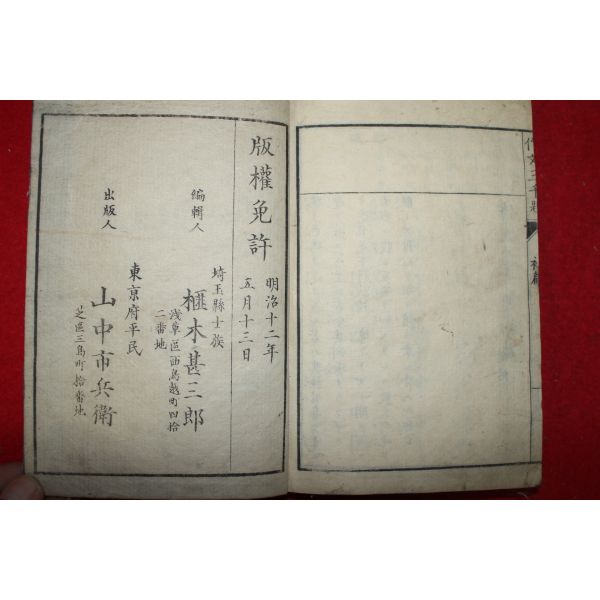 版權免許
明治十二年
五月十三日
編輯人
埼玉縣士族
榧木甚三郎
浅草區西鳥越町四拾
二番地
出版人
東京府平民
山中市兵衛
芝區三島町拾番地
初編